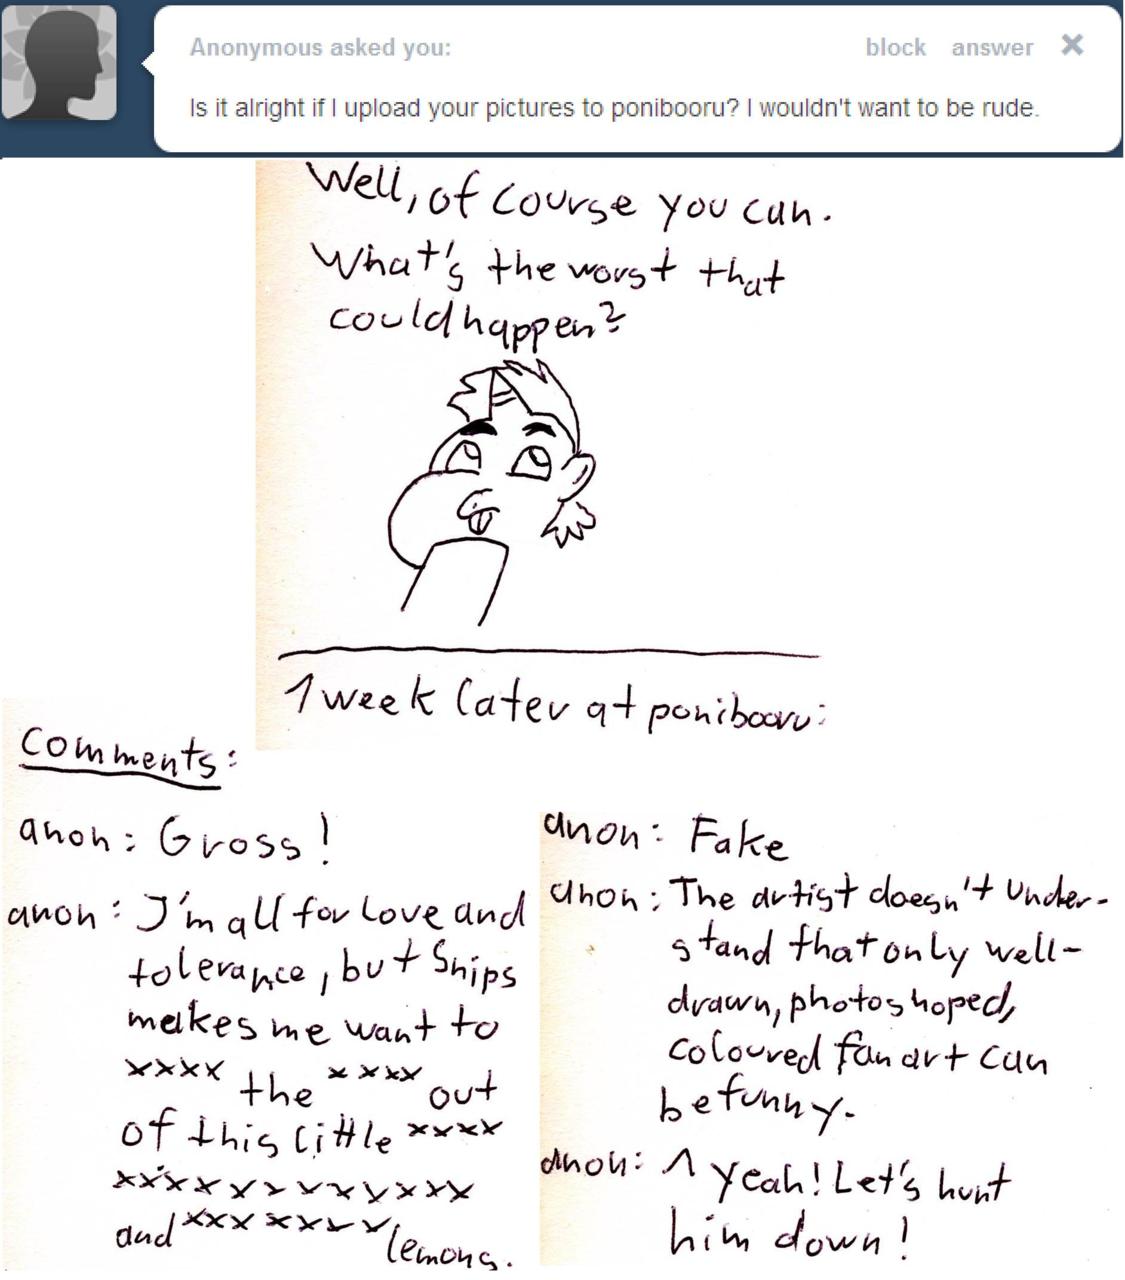 Anonymous asked you:
block answer
Is it alright if I upload your pictures to ponibooru? I wouldn't want to be rude.
Well, of course you can.
What's the worst that
could happen?
1 week later at ponibooru:
Comments:
anon: Gross!
anon: I'm all for love and
tolerance, but Snips
makes me want to
xxxx the xxxx out
of this little xxxx
xxxxxxxxxxxx
and xxx xxxxx lemons.
anon: Fake
anon: The artist doesn't under-
stand that only well-
drawn, photoshoped,
coloured fan art can
be funny.
anon: ^ Yeah! Let's hunt
him down!